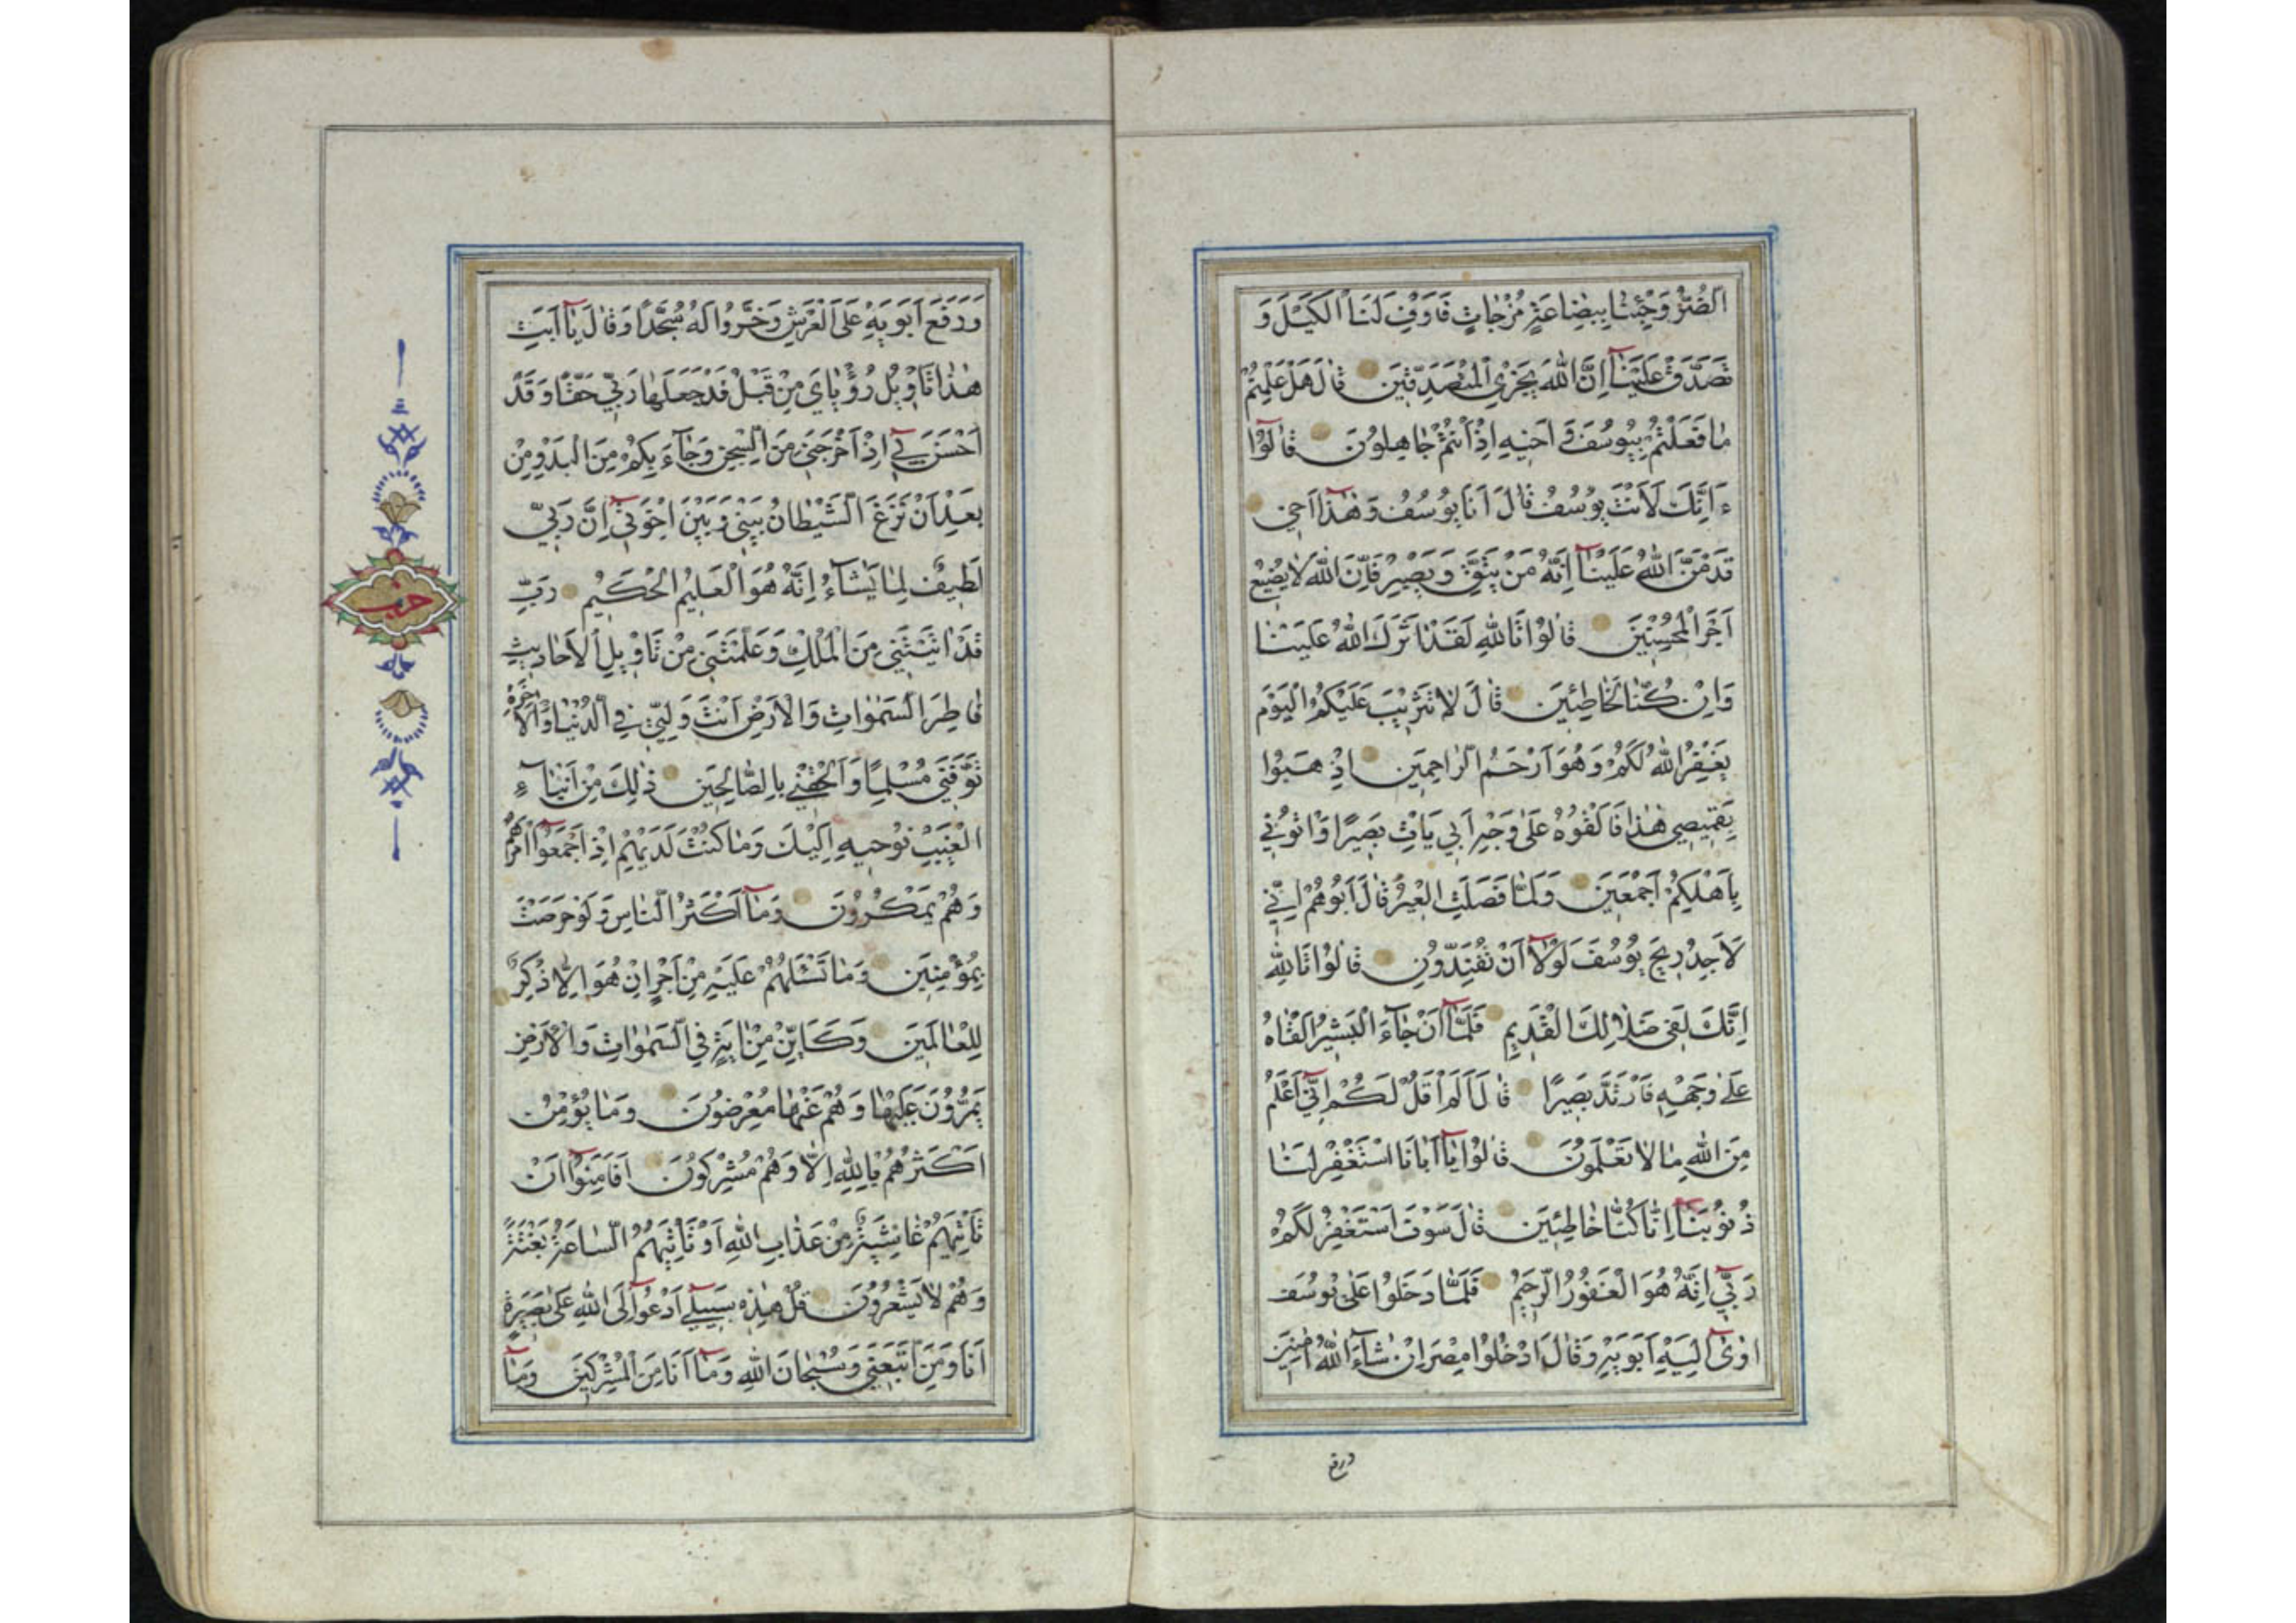 الضُّرُّ وَجِئْنَا بِبِضَاعَةٍ مُزْجَاةٍ فَاَوْفِ لَنَا الْكَيْلَ وَ
تَصَدَّقْ عَلَيْنَآ اِنَّ اللّٰهَ يَجْزِي الْمُتَصَدِّقِينَ قَالَ هَلْ عَلِمْتُمْ
مَا فَعَلْتُمْ بِيُوسُفَ وَ اَخِيهِ اِذْ اَنْتُمْ جَاهِلُونَ قَالُوٓا
ءَاِنَّكَ لَاَنْتَ يُوسُفُ قَالَ اَنَا يُوسُفُ وَهٰذَٓا اَخِي
قَدْ مَنَّ اللّٰهُ عَلَيْنَآ اِنَّهُ مَنْ يَتَّقِ وَيَصْبِرْ فَاِنَّ اللّٰهَ لَا يُضِيعُ
اَجْرَ الْمُحْسِنِينَ قَالُوا تَاللّٰهِ لَقَدْ اٰثَرَكَ اللّٰهُ عَلَيْنَا
وَاِنْ كُنَّا لَخَاطِئِينَ قَالَ لَا تَثْرِيبَ عَلَيْكُمُ الْيَوْمَ
يَغْفِرُ اللّٰهُ لَكُمْ وَهُوَ اَرْحَمُ الرَّاحِمِينَ اِذْهَبُوا
بِقَمِيصِي هٰذَا فَاَلْقُوهُ عَلٰى وَجْهِ اَبِي يَاْتِ بَصِيرًا وَاْتُونِي
بِاَهْلِكُمْ اَجْمَعِينَ وَلَمَّا فَصَلَتِ الْعِيرُ قَالَ اَبُوهُمْ اِنِّي
لَاَجِدُ رِيحَ يُوسُفَ لَوْلَآ اَنْ تُفَنِّدُونِ قَالُوا تَاللّٰهِ
اِنَّكَ لَفِي ضَلَالِكَ الْقَدِيمِ فَلَمَّآ اَنْ جَآءَ الْبَشِيرُ اَلْقٰاهُ
عَلٰى وَجْهِهِ فَارْتَدَّ بَصِيرًا قَالَ اَلَمْ اَقُلْ لَكُمْ اِنِّٓي اَعْلَمُ
مِنَ اللّٰهِ مَا لَا تَعْلَمُونَ قَالُوا يَآ اَبَانَا اسْتَغْفِرْ لَنَا
ذُنُوبَنَآ اِنَّا كُنَّا خَاطِئِينَ قَالَ سَوْفَ اَسْتَغْفِرُ لَكُمْ
رَبِّٓي اِنَّهُ هُوَ الْغَفُورُ الرَّحِيمُ فَلَمَّا دَخَلُوا عَلٰى يُوسُفَ
اٰوٰٓى اِلَيْهِ اَبَوَيْهِ وَقَالَ ادْخُلُوا مِصْرَ اِنْ شَآءَ اللّٰهُ اٰمِنِينَ
ورفع
وَرَفَعَ اَبَوَيْهِ عَلَى الْعَرْشِ وَخَرُّوا لَهُ سُجَّدًا وَقَالَ يَآ اَبَتِ
هٰذَا تَاْوِيلُ رُؤْيَايَ مِنْ قَبْلُ قَدْ جَعَلَهَا رَبِّي حَقًّا وَقَدْ
اَحْسَنَ بِٓي اِذْ اَخْرَجَنِي مِنَ السِّجْنِ وَجَآءَ بِكُمْ مِنَ الْبَدْوِ مِنْ
بَعْدِ اَنْ نَزَغَ الشَّيْطَانُ بَيْنِي وَبَيْنَ اِخْوَتِٓي اِنَّ رَبِّي
لَطِيفٌ لِمَا يَشَآءُ اِنَّهُ هُوَ الْعَلِيمُ الْحَكِيمُ رَبِّ
قَدْ اٰتَيْتَنِي مِنَ الْمُلْكِ وَعَلَّمْتَنِي مِنْ تَاْوِيلِ الْاَحَادِيثِ
فَاطِرَ السَّمٰوَاتِ وَالْاَرْضِ اَنْتَ وَلِيِّي فِي الدُّنْيَا وَالْاٰخِرَةِ
تَوَفَّنِي مُسْلِمًا وَاَلْحِقْنِي بِالصَّالِحِينَ ذٰلِكَ مِنْ اَنْبَآءِ
الْغَيْبِ نُوحِيهِ اِلَيْكَ وَمَا كُنْتَ لَدَيْهِمْ اِذْ اَجْمَعُوٓا اَمْرَهُمْ
وَهُمْ يَمْكُرُونَ وَمَآ اَكْثَرُ النَّاسِ وَلَوْ حَرَصْتَ
بِمُؤْمِنِينَ وَمَا تَسْـَٔلُهُمْ عَلَيْهِ مِنْ اَجْرٍ اِنْ هُوَ اِلَّا ذِكْرٌ
لِلْعَالَمِينَ وَكَاَيِّنْ مِنْ اٰيَةٍ فِي السَّمٰوَاتِ وَالْاَرْضِ
يَمُرُّونَ عَلَيْهَا وَهُمْ عَنْهَا مُعْرِضُونَ وَمَا يُؤْمِنُ
اَكْثَرُهُمْ بِاللّٰهِ اِلَّا وَهُمْ مُشْرِكُونَ اَفَاَمِنُوٓا اَنْ
تَاْتِيَهُمْ غَاشِيَةٌ مِنْ عَذَابِ اللّٰهِ اَوْ تَاْتِيَهُمُ السَّاعَةُ بَغْتَةً
وَهُمْ لَا يَشْعُرُونَ قُلْ هٰذِهِ سَبِيلِٓي اَدْعُوٓا اِلَى اللّٰهِ عَلٰى بَصِيرَةٍ
اَنَا وَمَنِ اتَّبَعَنِي وَسُبْحَانَ اللّٰهِ وَمَآ اَنَا مِنَ الْمُشْرِكِينَ وَمَآ
حزب